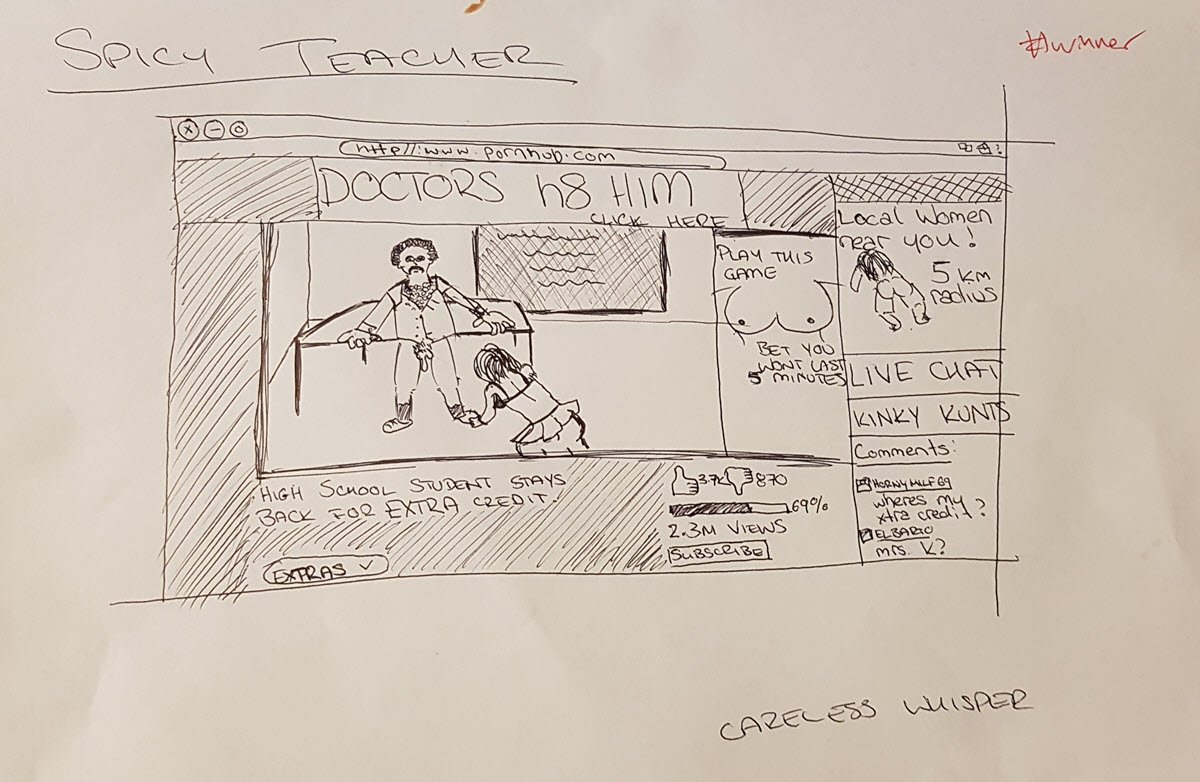 SPICY TEACHER
#1winner
http//:www.pornhub.com
DOCTORS h8 HIM
CLICK HERE
Local Women
near you!
5 km
radius
PLAY THIS
GAME
BET YOU
WONT LAST
5 MINUTES
LIVE CHAT
KINKY KUNTS
HIGH SCHOOL STUDENT STAYS
BACK FOR EXTRA CREDIT.
EXTRAS
37k 870
69%
2.3M VIEWS
SUBSCRIBE
Comments:
HORNYMILF69
wheres my
xtra credit?
ELBARTO
mrs. K?
CARELESS WHISPER